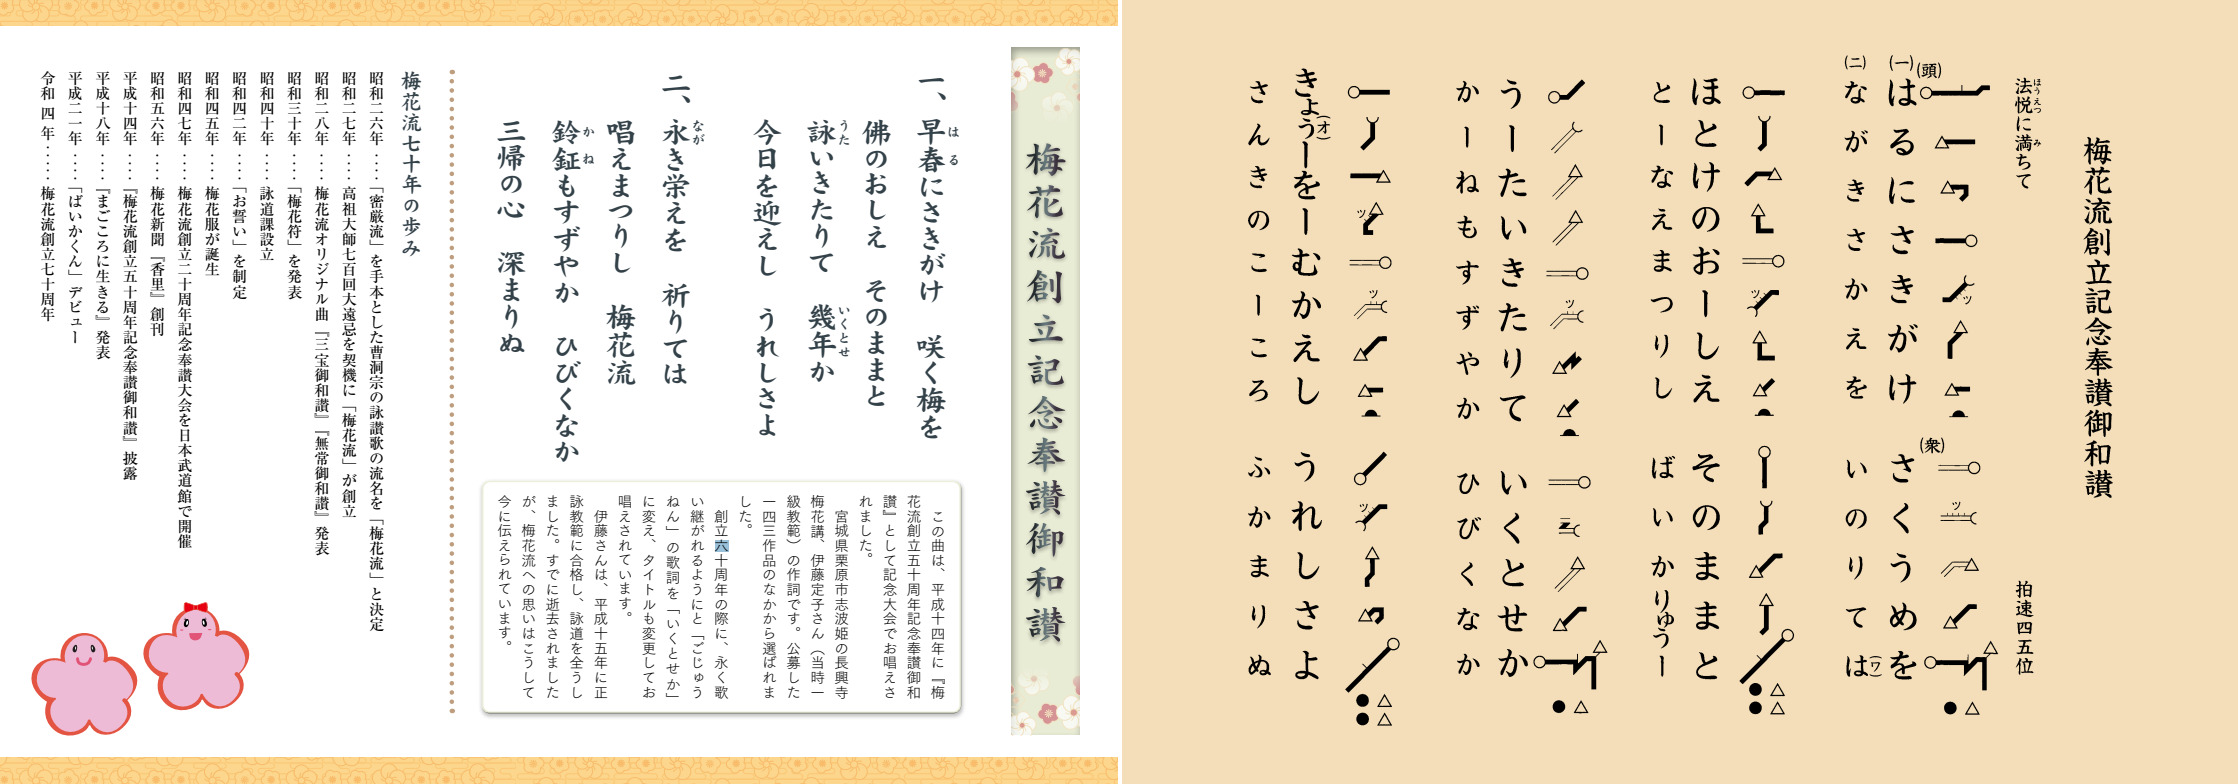 梅花流創立記念奉讃御和讃
一、早春にさきがけ　咲く梅を
はる
佛のおしえ　そのままと
詠いきたりて　幾年か
うた
いくとせ
今日を迎えし　うれしさよ
二、永き栄えを　祈りては
なが
唱えまつりし　梅花流
鈴鉦もすずやか　ひびくなか
かね
三帰の心　深まりぬ
この曲は、平成十四年に『梅
花流創立五十周年記念奉讃御和
讃』として記念大会でお唱えさ
れました。
宮城県栗原市志波姫の長興寺
梅花講、伊藤定子さん（当時一
級教範）の作詞です。公募した
一四三作品のなかから選ばれま
した。
創立六十周年の際に、永く歌
い継がれるようにと「ごじゅう
ねん」の歌詞を「いくとせか」
に変え、タイトルも変更してお
唱えされています。
伊藤さんは、平成十五年に正
詠教範に合格し、詠道を全うし
ました。すでに逝去されました
が、梅花流への思いはこうして
今に伝えられています。
梅花流七十年の歩み
昭和二六年・・・・「密厳流」を手本とした曹洞宗の詠讃歌の流名を「梅花流」と決定
昭和二七年・・・・高祖大師七百回大遠忌を契機に「梅花流」が創立
昭和二八年・・・・梅花流オリジナル曲『三宝御和讃』『無常御和讃』発表
昭和三十年・・・・「梅花符」を発表
昭和四十年・・・・詠道課設立
昭和四二年・・・・「お誓い」を制定
昭和四五年・・・・梅花服が誕生
昭和四七年・・・・梅花流創立二十周年記念奉讃大会を日本武道館で開催
昭和五六年・・・・梅花新聞『香里』創刊
平成十四年・・・・『梅花流創立五十周年記念奉讃御和讃』披露
平成十八年・・・・『まごころに生きる』発表
平成二一年・・・・「ばいかくん」デビュー
令和 四 年・・・・・梅花流創立七十周年
梅花流創立記念奉讃御和讃
法悦に満ちて　拍速四五位
ほうえつ　み
(頭)　(衆)
(一)はるにさきがけ　さくうめを
(二)ながきさかえを　いのりては(ワ)
ほとけのおーしえ　そのままと
とーなえまつりし　ばいかりゅうー
うーたいきたりて　いくとせか
かーねもすずやか　ひびくなか
きょう(オ)ーをーむかえし　うれしさよ
さんきのこーころ　ふかまりぬ
ツ
ツ
ツ
ツ
ツ
ツ
ツ
ツ